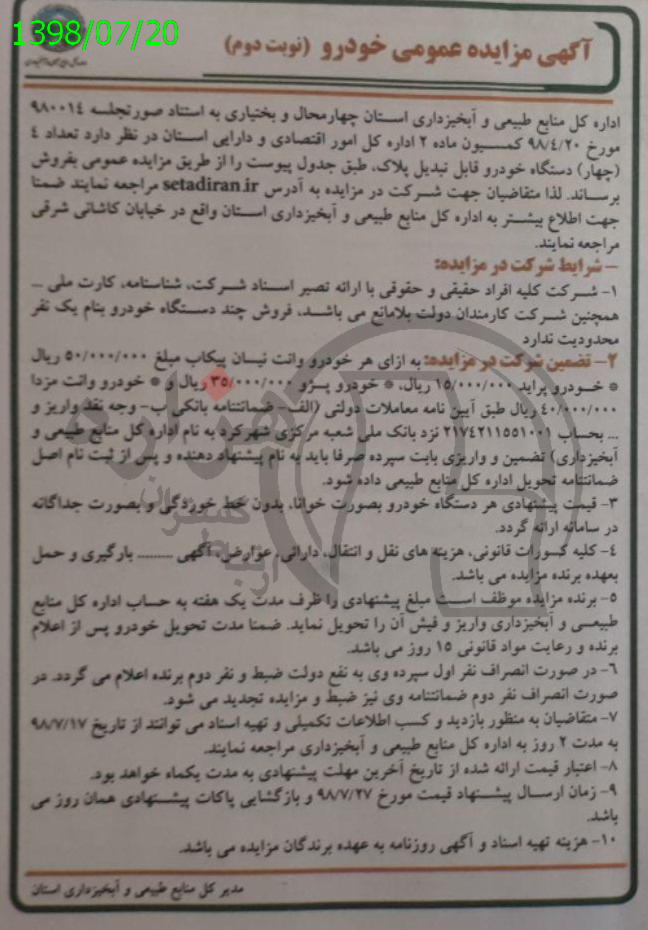 1398/07/20
آگهی مزایده عمومی خودرو (نوبت دوم)
اداره کل منابع طبیعی و آبخیزداری استان چهارمحال و بختیاری به استناد صورتجلسه ۹۸۰۰۱۴
مورخ ۹۸/۴/۲۰ کمسیون ماده ۲ اداره کل امور اقتصادی و دارایی استان در نظر دارد تعداد ٤
(چهار) دستگاه خودرو قابل تبدیل پلاک، طبق جدول پیوست را از طریق مزایده عمومی بفروش
برساند. لذا متقاضیان جهت شرکت در مزایده به آدرس setadiran.ir مراجعه نمایند ضمنا
جهت اطلاع بیشتر به اداره کل منابع طبیعی و آبخیزداری استان واقع در خیابان کاشانی شرقی
مراجعه نمایند.
– شرایط شرکت در مزایده:
۱- شرکت کلیه افراد حقیقی و حقوقی با ارائه تصیر اسناد شرکت، شناسنامه، کارت ملی ...
همچنین شرکت کارمندان دولت بلامانع می باشد، فروش چند دستگاه خودرو بنام یک نفر
محدودیت ندارد
۲- تضمین شرکت در مزایده: به ازای هر خودرو وانت نیسان پیکاب مبلغ ۵۰/۰۰۰/۰۰۰ ریال
* خودرو پراید ۱۵/۰۰۰/۰۰۰ ریال، * خودرو پژو ۳۵/۰۰۰/۰۰۰ ریال و * خودرو وانت مزدا
۴۰/۰۰۰/۰۰۰ ریال طبق آیین نامه معاملات دولتی (الف- ضمانتنامه بانکی ب- وجه نقد واریز و
... بحساب ۲۱۷۴۲۱۱۵۵۱۰۰۱ نزد بانک ملی شعبه مرکزی شهرکرد به نام اداره کل منابع طبیعی و
آبخیزداری) تضمین و واریزی بابت سپرده صرفا باید به نام پیشنهاد دهنده و پس از ثبت نام اصل
ضمانتنامه تحویل اداره کل منابع طبیعی داده شود.
۳- قیمت پیشنهادی هر دستگاه خودرو بصورت خوانا، بدون خط خوردگی و بصورت جداگانه
در سامانه ارائه گردد.
٤- کلیه کسورات قانونی، هزینه های نقل و انتقال، دارائی، عوارض، آگهی ......... بارگیری و حمل
بعهده برنده مزایده می باشد.
۵- برنده مزایده موظف است مبلغ پیشنهادی را ظرف مدت یک هفته به حساب اداره کل منابع
طبیعی و آبخیزداری واریز و فیش آن را تحویل نماید. ضمنا مدت تحویل خودرو پس از اعلام
برنده و رعایت مواد قانونی ۱۵ روز می باشد.
٦- در صورت انصراف نفر اول سپرده وی به نفع دولت ضبط و نفر دوم برنده اعلام می گردد. در
صورت انصراف نفر دوم ضمانتنامه وی نیز ضبط و مزایده تجدید می شود.
۷- متقاضیان به منظور بازدید و کسب اطلاعات تکمیلی و تهیه اسناد می توانند از تاریخ ۹۸/۷/۱۷
به مدت ۲ روز به اداره کل منابع طبیعی و آبخیزداری مراجعه نمایند.
۸- اعتبار قیمت ارائه شده از تاریخ آخرین مهلت پیشنهادی به مدت یکماه خواهد بود.
۹- زمان ارسال پیشنهاد قیمت مورخ ۹۸/۷/۲۷ و بازگشایی پاکات پیشنهادی همان روز می
باشد.
۱۰- هزینه تهیه اسناد و آگهی روزنامه به عهده برندگان مزایده می باشد.
مدیر کل منابع طبیعی و آبخیزداری استان